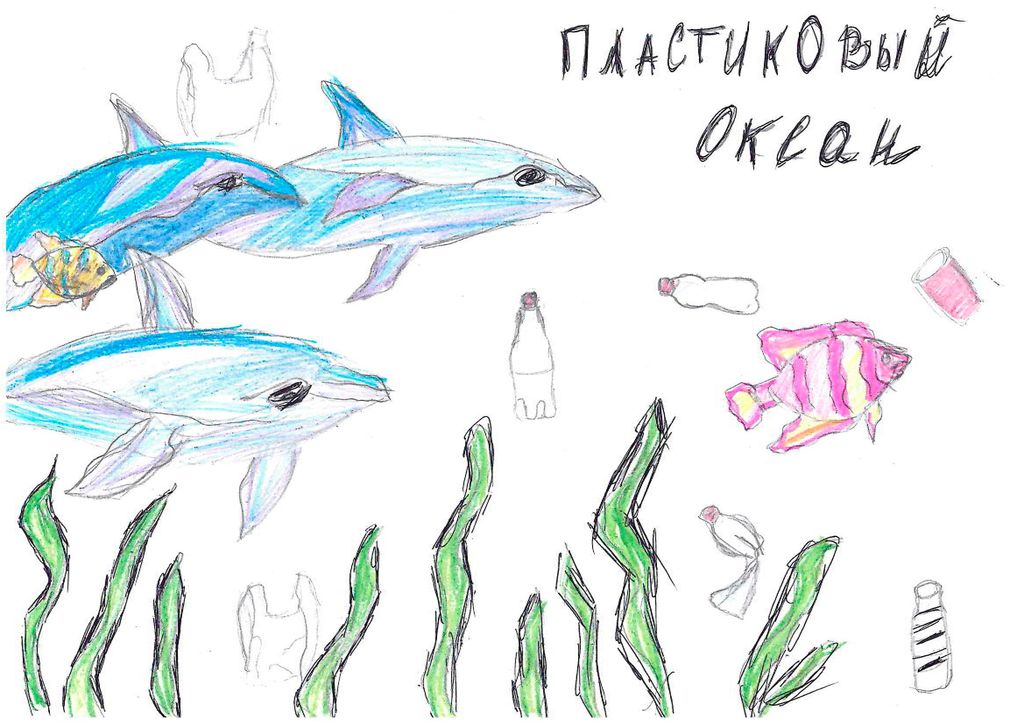 ПЛАСТИКОВЫЙ
ОКЕАН